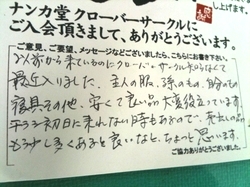 し上げます。
ナンカ堂 クローバーサークルに
ご入会頂きまして、ありがとうございます。
ご意見、ご要望、メッセージなどございましたら、こちらにお書き下さい。
から来ているのにクローバーサークル知らなくて
最近入りました。主人の服、孫のもの、自分のもの
寝具その他、安くて良い品 大変役立っています
チラシ初日に来れない時もあるので、売出しの品
もう少し多くあると良いなと、ちょっと思います。
ご協力ありがとうございました。